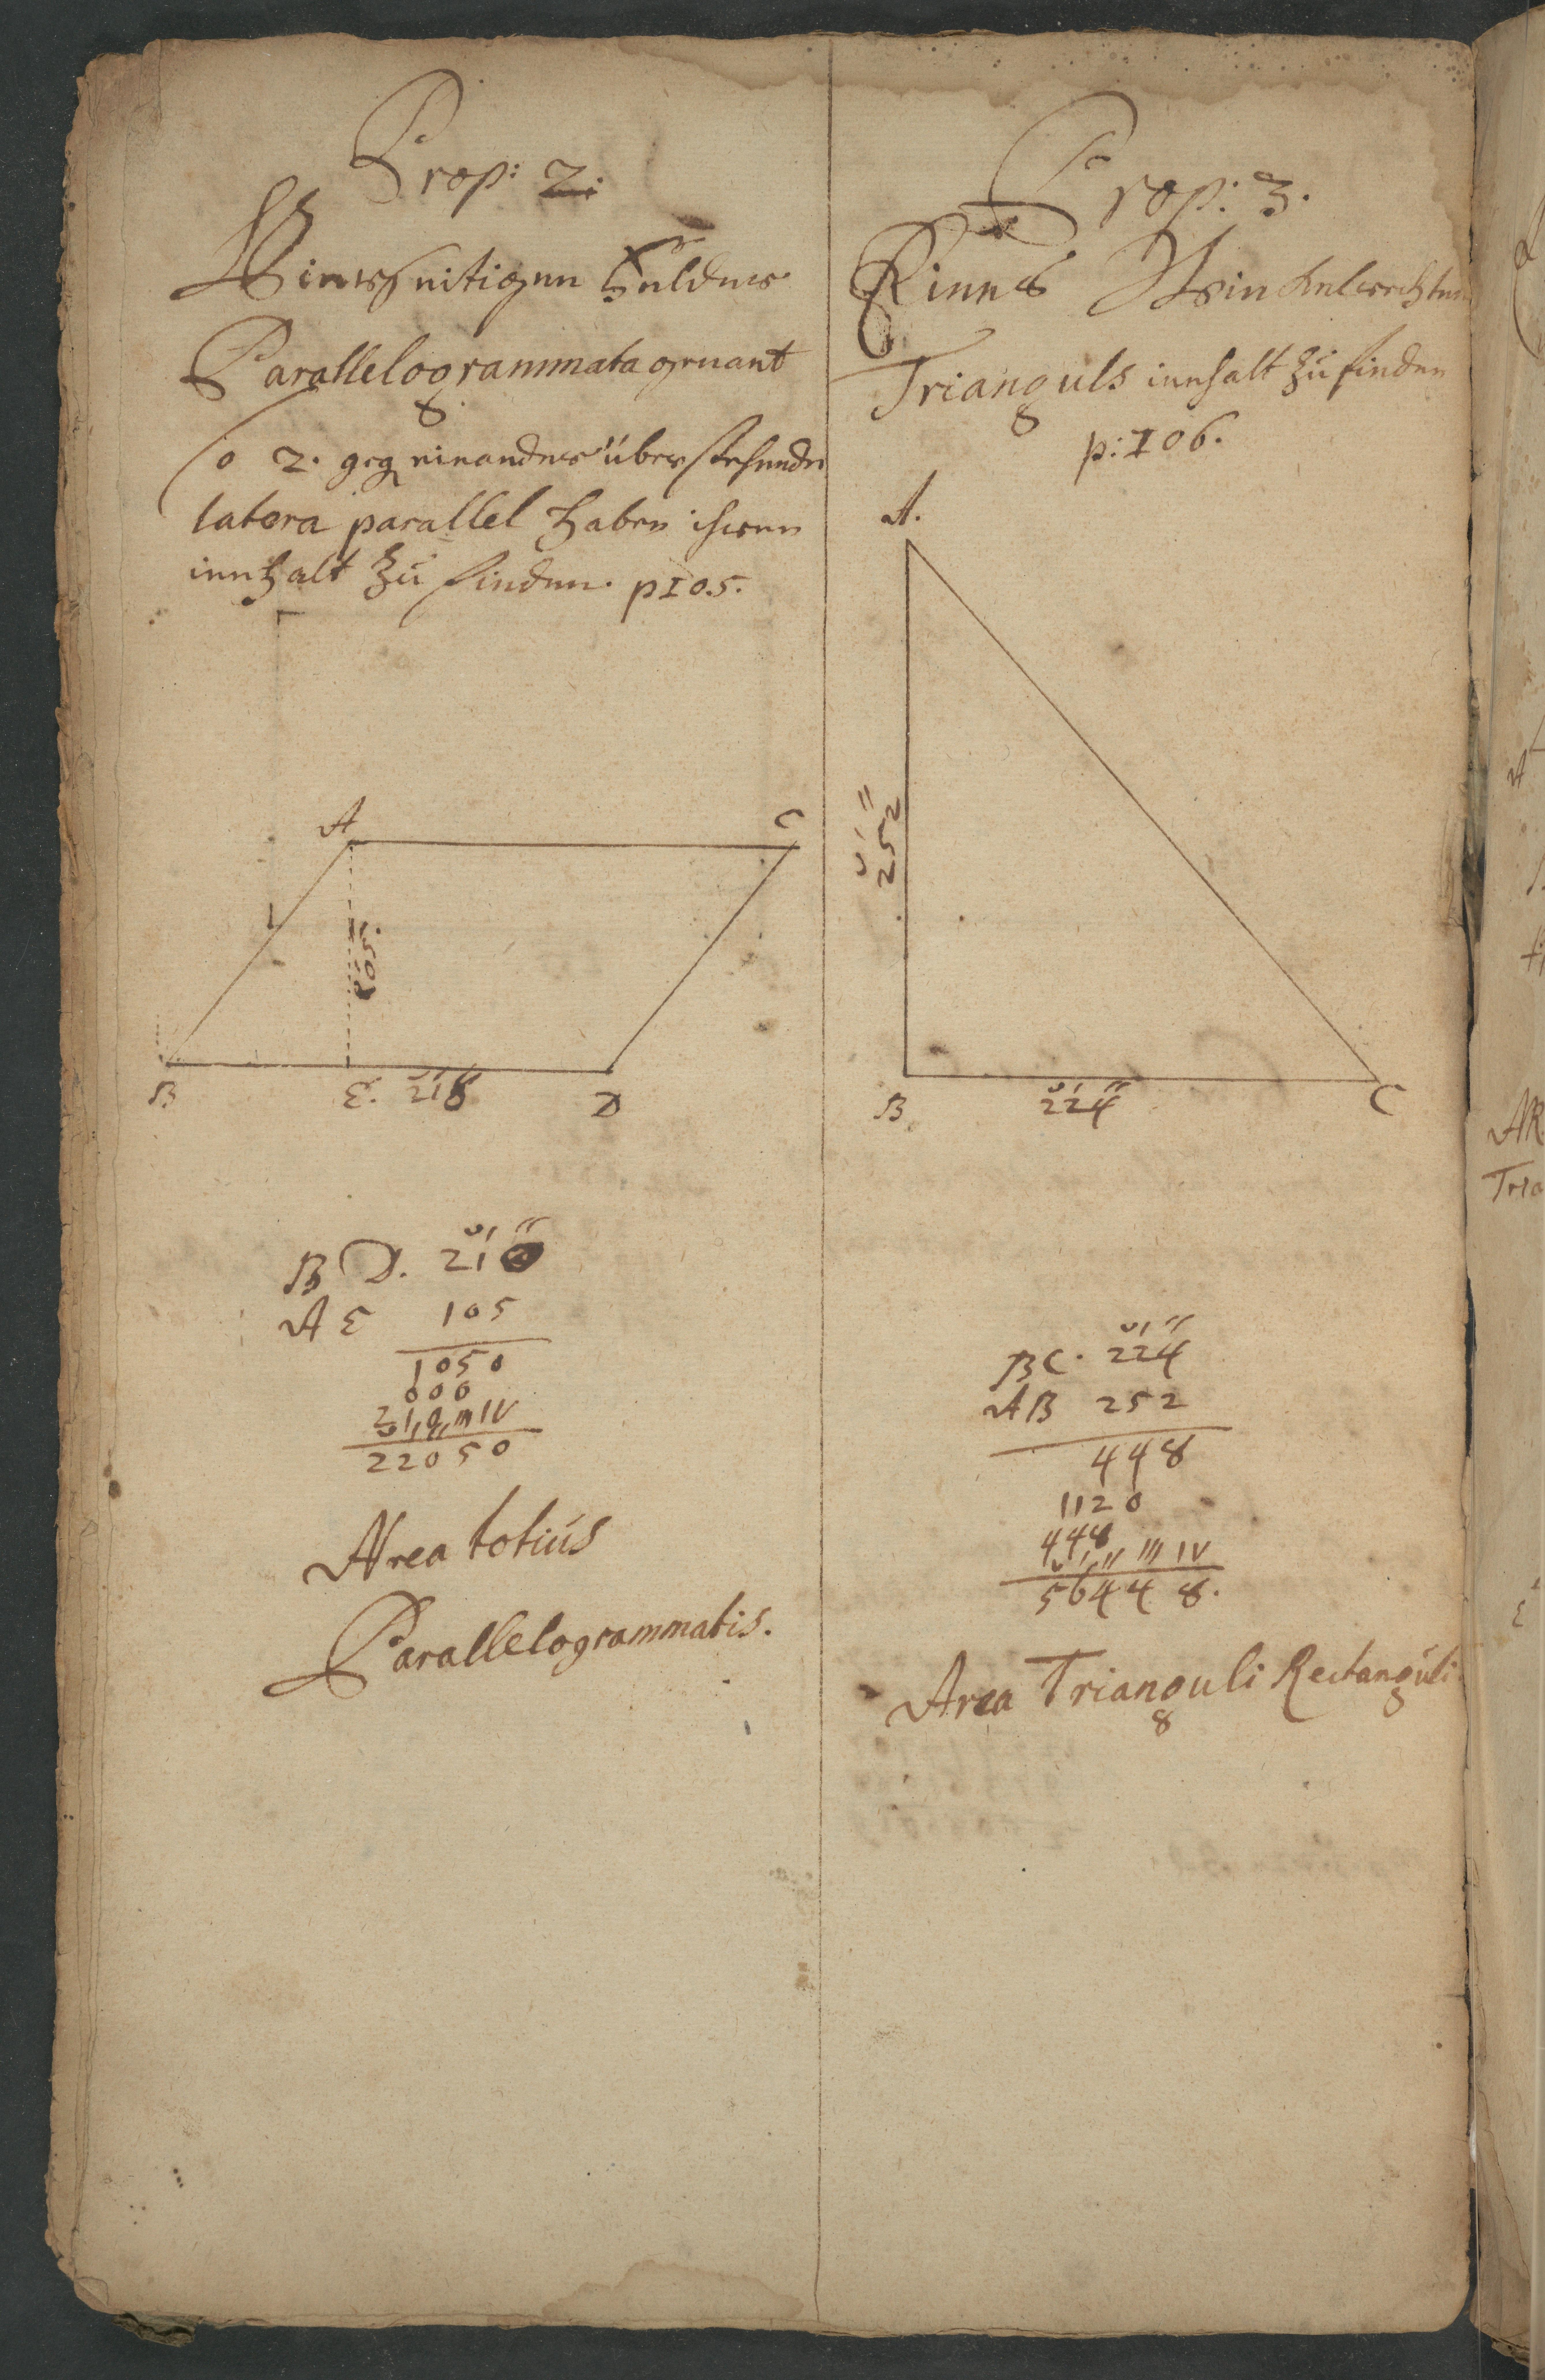 Prop: 2.
Vierseitigen Felder
Parallelogrammata genant
so 2. geg einander über stehende
latera parallel haben ihren
innhalt zu finden. p105.
A
C
105.
B
E. 218
D
BD. 210
AE 105
1050
000
210
0 I II III IV
22050
Area totius
Parallelogrammatis.
Prop: 3.
Eines Winckelrechten
Trianguls innhalt zu finden
p: 106.
A.
252
B
224
C
BC. 224
AB 252
448
1120
448
0 I II III IV
56448.
Area Trianguli Rectanguli